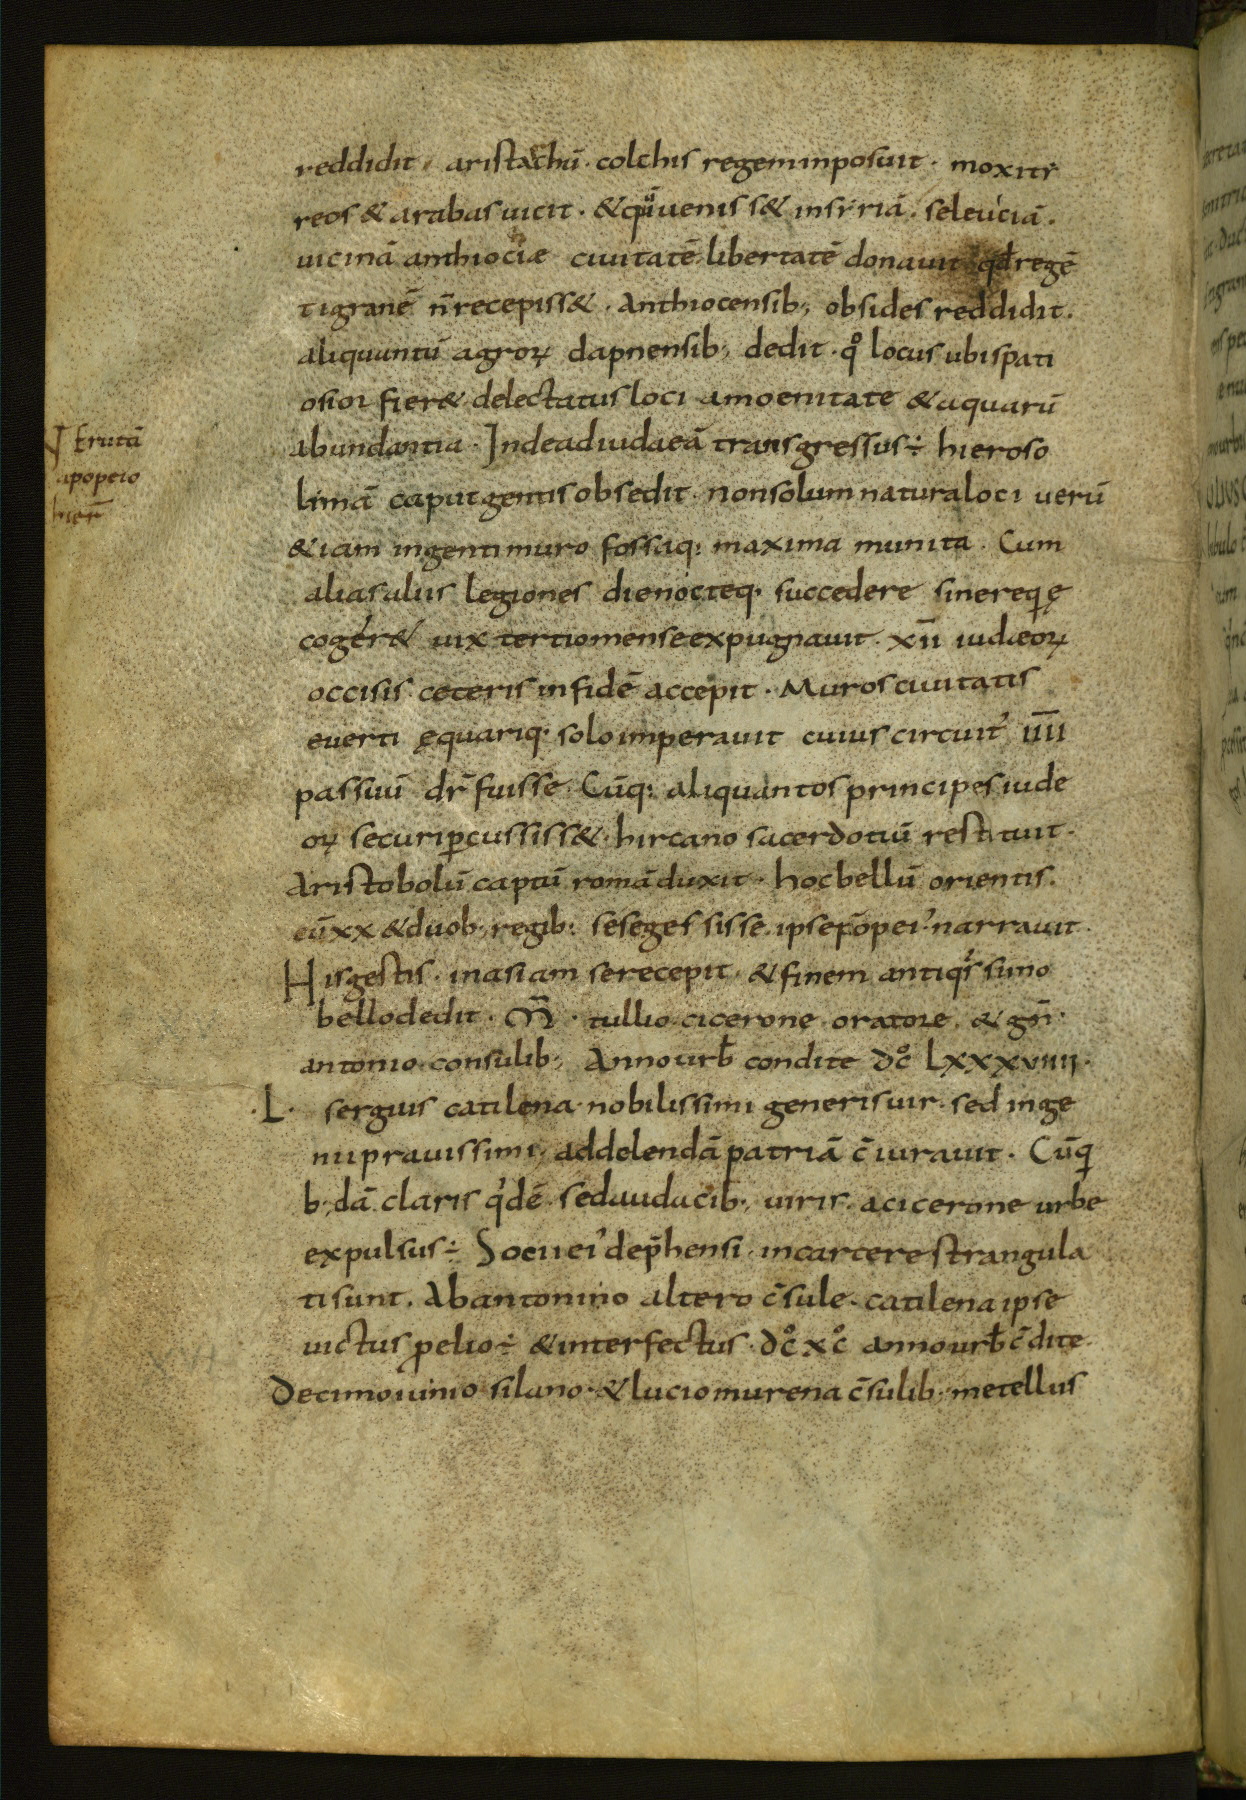 reddidit · aristachū · colchis regem inposuit · mox ity
reos & arabas uicit · & cū uenisset in siriā · seleuciā ·
uicinā anthiociæ ciuitatē libertatē donauit qd regē
tigranē n̄ recepiss& · Anthiocensib; obsides reddidit ·
aliquantū agroꝝ dapnensib; dedit · qͦ locus ubi spati
osior fier& delectatus loci amoenitate & aquarū
abundantia · Inde ad iudaeā transgressus ÷ hieroso
limā caput gentis obsedit · non solum natura loci uerū
& iam ingenti muro fossaq: maxima munita · Cum
alias aliis legiones die nocteq· succedere sine requię
coger& uix tertio mense expugnauit · xii iudæoꝝ
occisis ceteris in fidē accepit · Muros ciuitatis
euerti ęquariq· solo imperauit cuius circuit' iiii
passuū dr̄ fuisse · Cūq: aliquantos principes iude
oꝝ securi ꝑcussiss& · hircano sacerdotiū restituit ·
Aristobolū captū romā duxit · hoc bellū orientis ·
cū xx & duob; regib: se se gessisse ipse pōpei' narrauit ·
His gestis · in asiam se recepit · & finem antiqissimo
bello dedit · M̄ · tullio cicerone oratore · & gn̄ ·
antonio consulib; Anno urb̄ condite dcͦ Lxxxviiii ·
· L · sergius catilena nobilissimi generis uir · sed inge
nii prauissimi · ad delendā patriā c̄iurauit · Cūq
b; dā claris qdē sed audacib; uiris · a cicerone urbe
expulsus ÷ Socii ei' dep̄hensi · in carcere strangula
ti sunt · Ab antonino altero c̄sule · catilena ipse
uictus ꝓelio ÷ & interfectus · dcͦ xcͦ anno urb̄ c̄dite ·
Decimo iunio silano · & lucio murena c̄sulib; metellus
Erutā
apopeio
hier̄